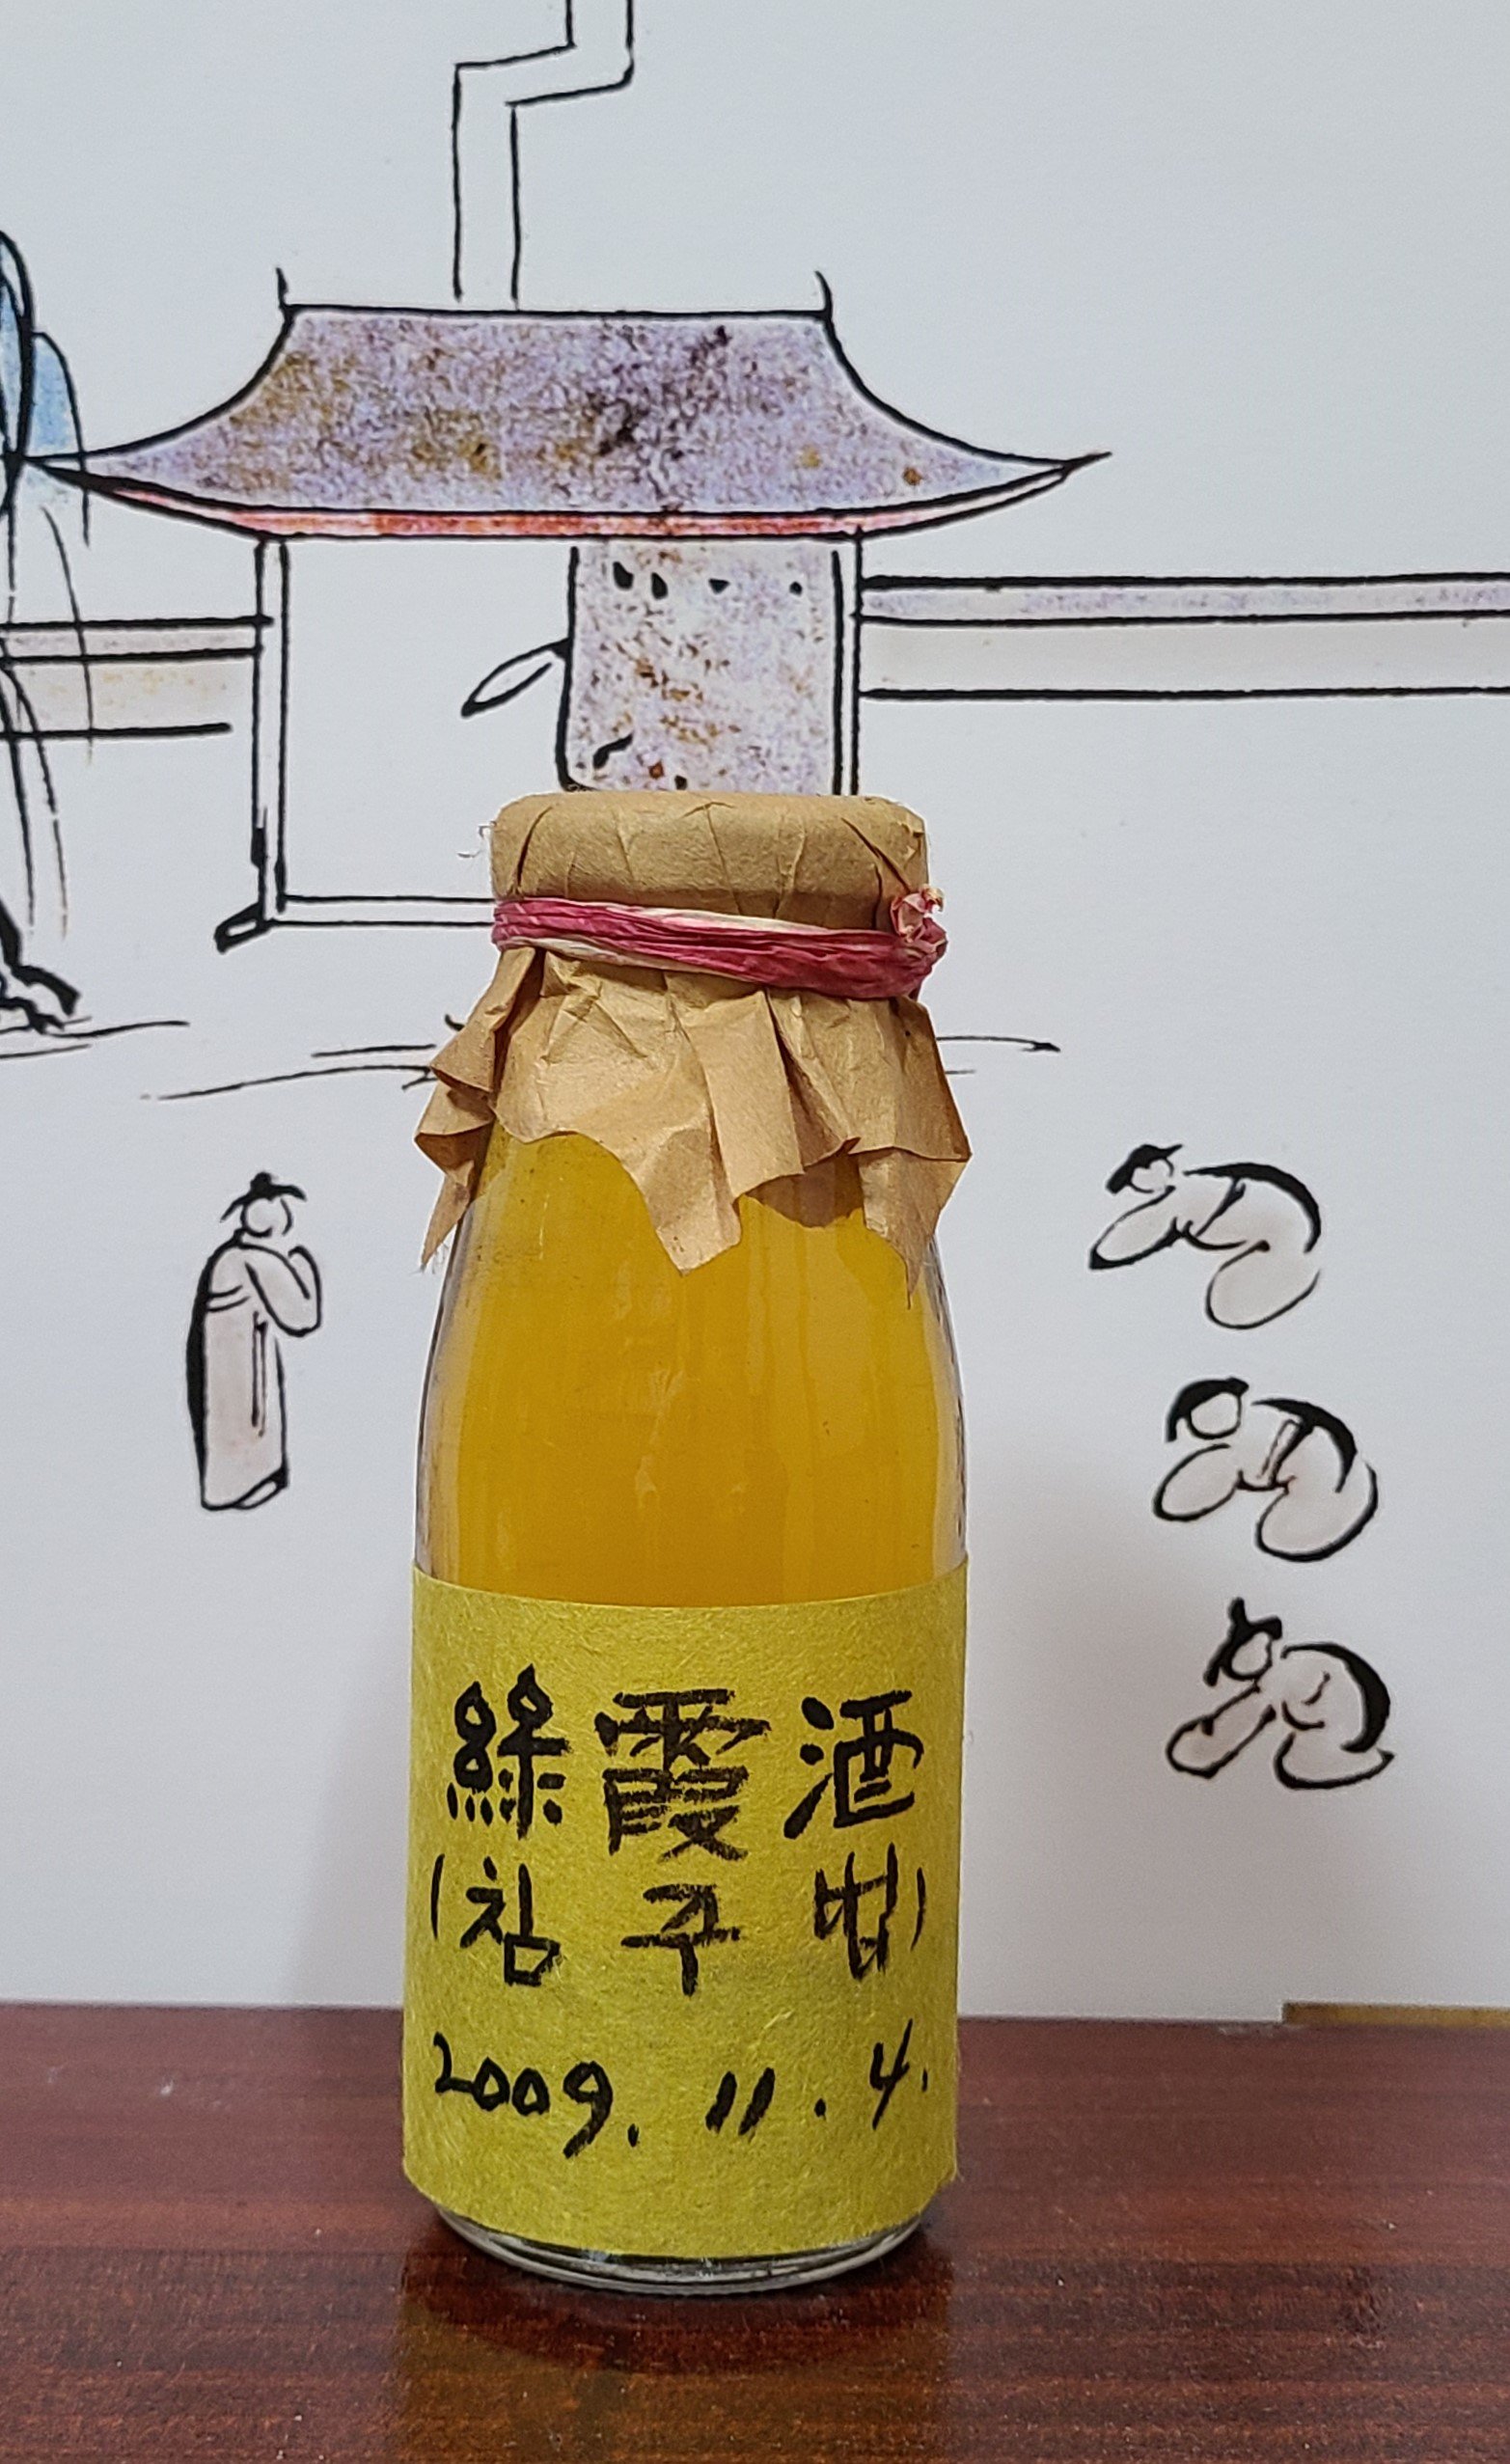 綠霞酒
(침주법)
2009. 11. 4.